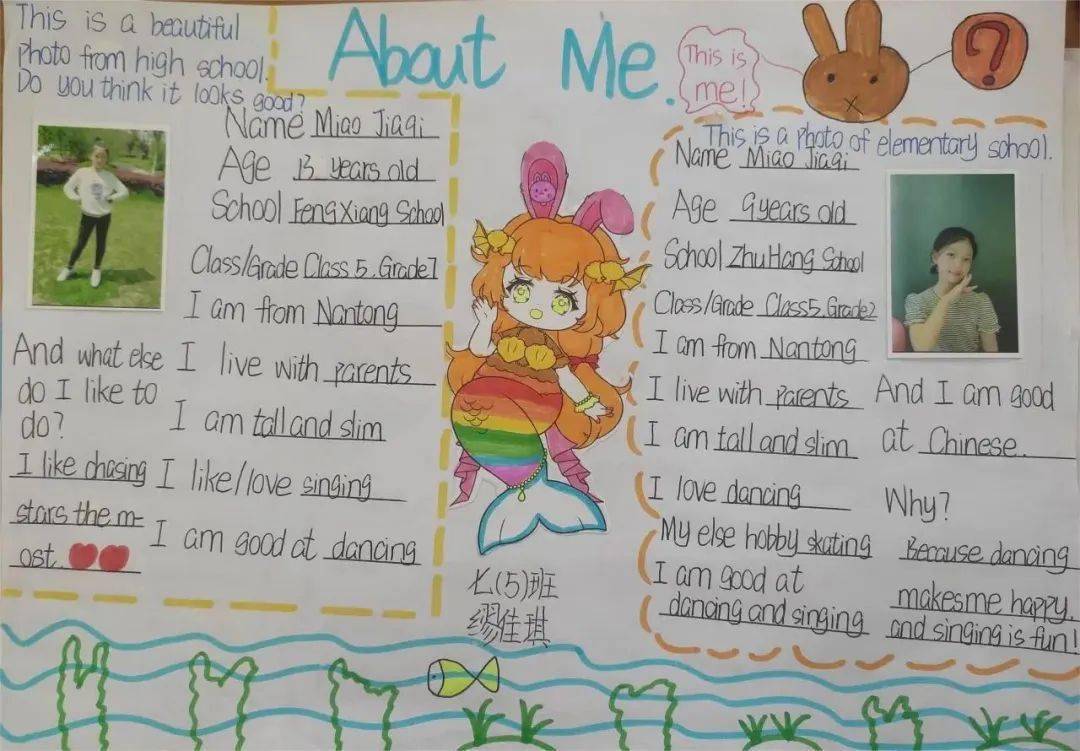 This is a beautiful
photo from high school.
Do you think it looks good?
About Me.
This is
me!
?
Name Miao Jiaqi
Age 13 years old
School FengXiang School
Class/Grade Class 5. Grade7
I am from Nantong
I live with parents
I am tall and slim
I like/love singing
I am good at dancing
And what else
do I like to
do?
I like chasing
stars the m-
ost.
七(5)班
缪佳琪
This is a photo of elementary school.
Name Miao Jiaqi
Age 9 years old
School ZhuHang School
Class/Grade Class5. Grade2
I am from Nantong
I live with parents
I am tall and slim
I love dancing
My else hobby skating
I am good at
dancing and singing
And I am good
at Chinese.
Why?
Because dancing
makes me happy.
and singing is fun!